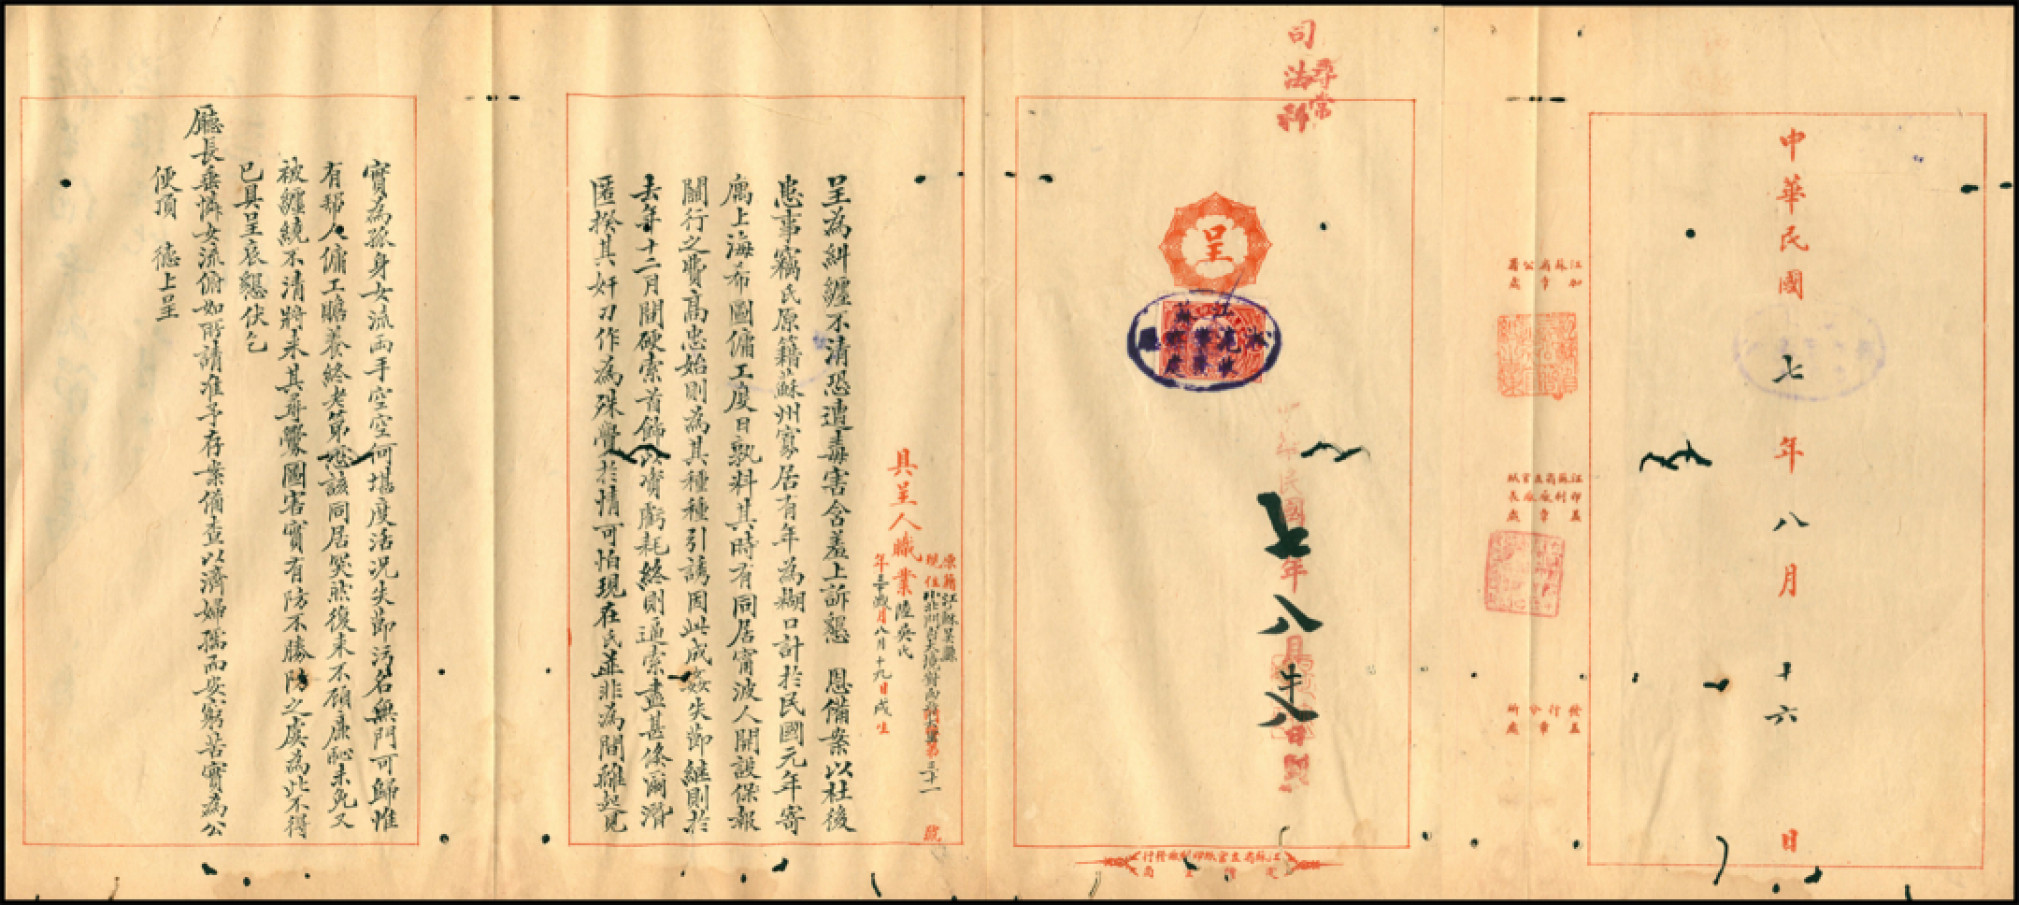 中華民國七年八月十六日
司法科
尋常
呈
中華民國七年八月十八日到
具呈人職業陸吳氏
原籍江蘇吳縣
年 歲八月十九日戌生
呈為糾纏不清恐遭毒害含羞上訴懇 恩備案以杜後
患事竊氏原籍蘇州寡居有年為糊口計於民國元年寄
寓上海希圖傭工度日孰料其時有同居甯波人開設保報
關行之費高忠始則為其種種引誘因此成姦失節継則於
去年十二月間硬索首飾以資虧耗終則逼索盡甚倏爾潛
匿揆其奸刁作為殊覺於情可怕現在氏並非為間離起見
實為孤身女流両手空空何堪度活況失節污名無門可歸惟
有帮人傭工贍養終老第恐該同居突然復來不顧廉恥未免又
被纏繞不清將來其尋釁圖害實有防不勝防之虞為此不得
已具呈哀懇伏乞
廳長垂憐女流俯如所請准予存案備查以濟婦孺而安窮苦實為公
便頂 德上呈